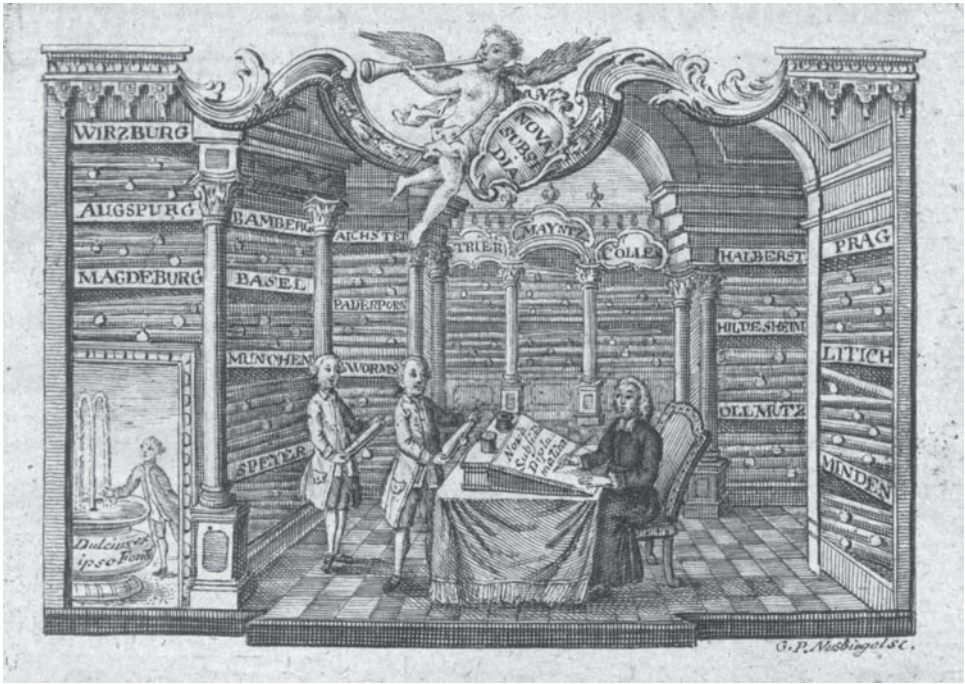 NOVA
SUBSI
DIA
WIRZBURG
AUGSPURG
MAGDEBURG
BAMBERG
BASEL
MUNCHEN
SPEYER
AICHSTET
PADERPORN
WORMS
TRIER
MAYNTZ
COLLEN
HALBERST
HILDESHEIM
OLLMUTZ
PRAG
LITICH
MINDEN
Nova
Subsidia
Diplo
matica
Dulcius ex
ipso Fonte
G. P. Nusbiegel sc.